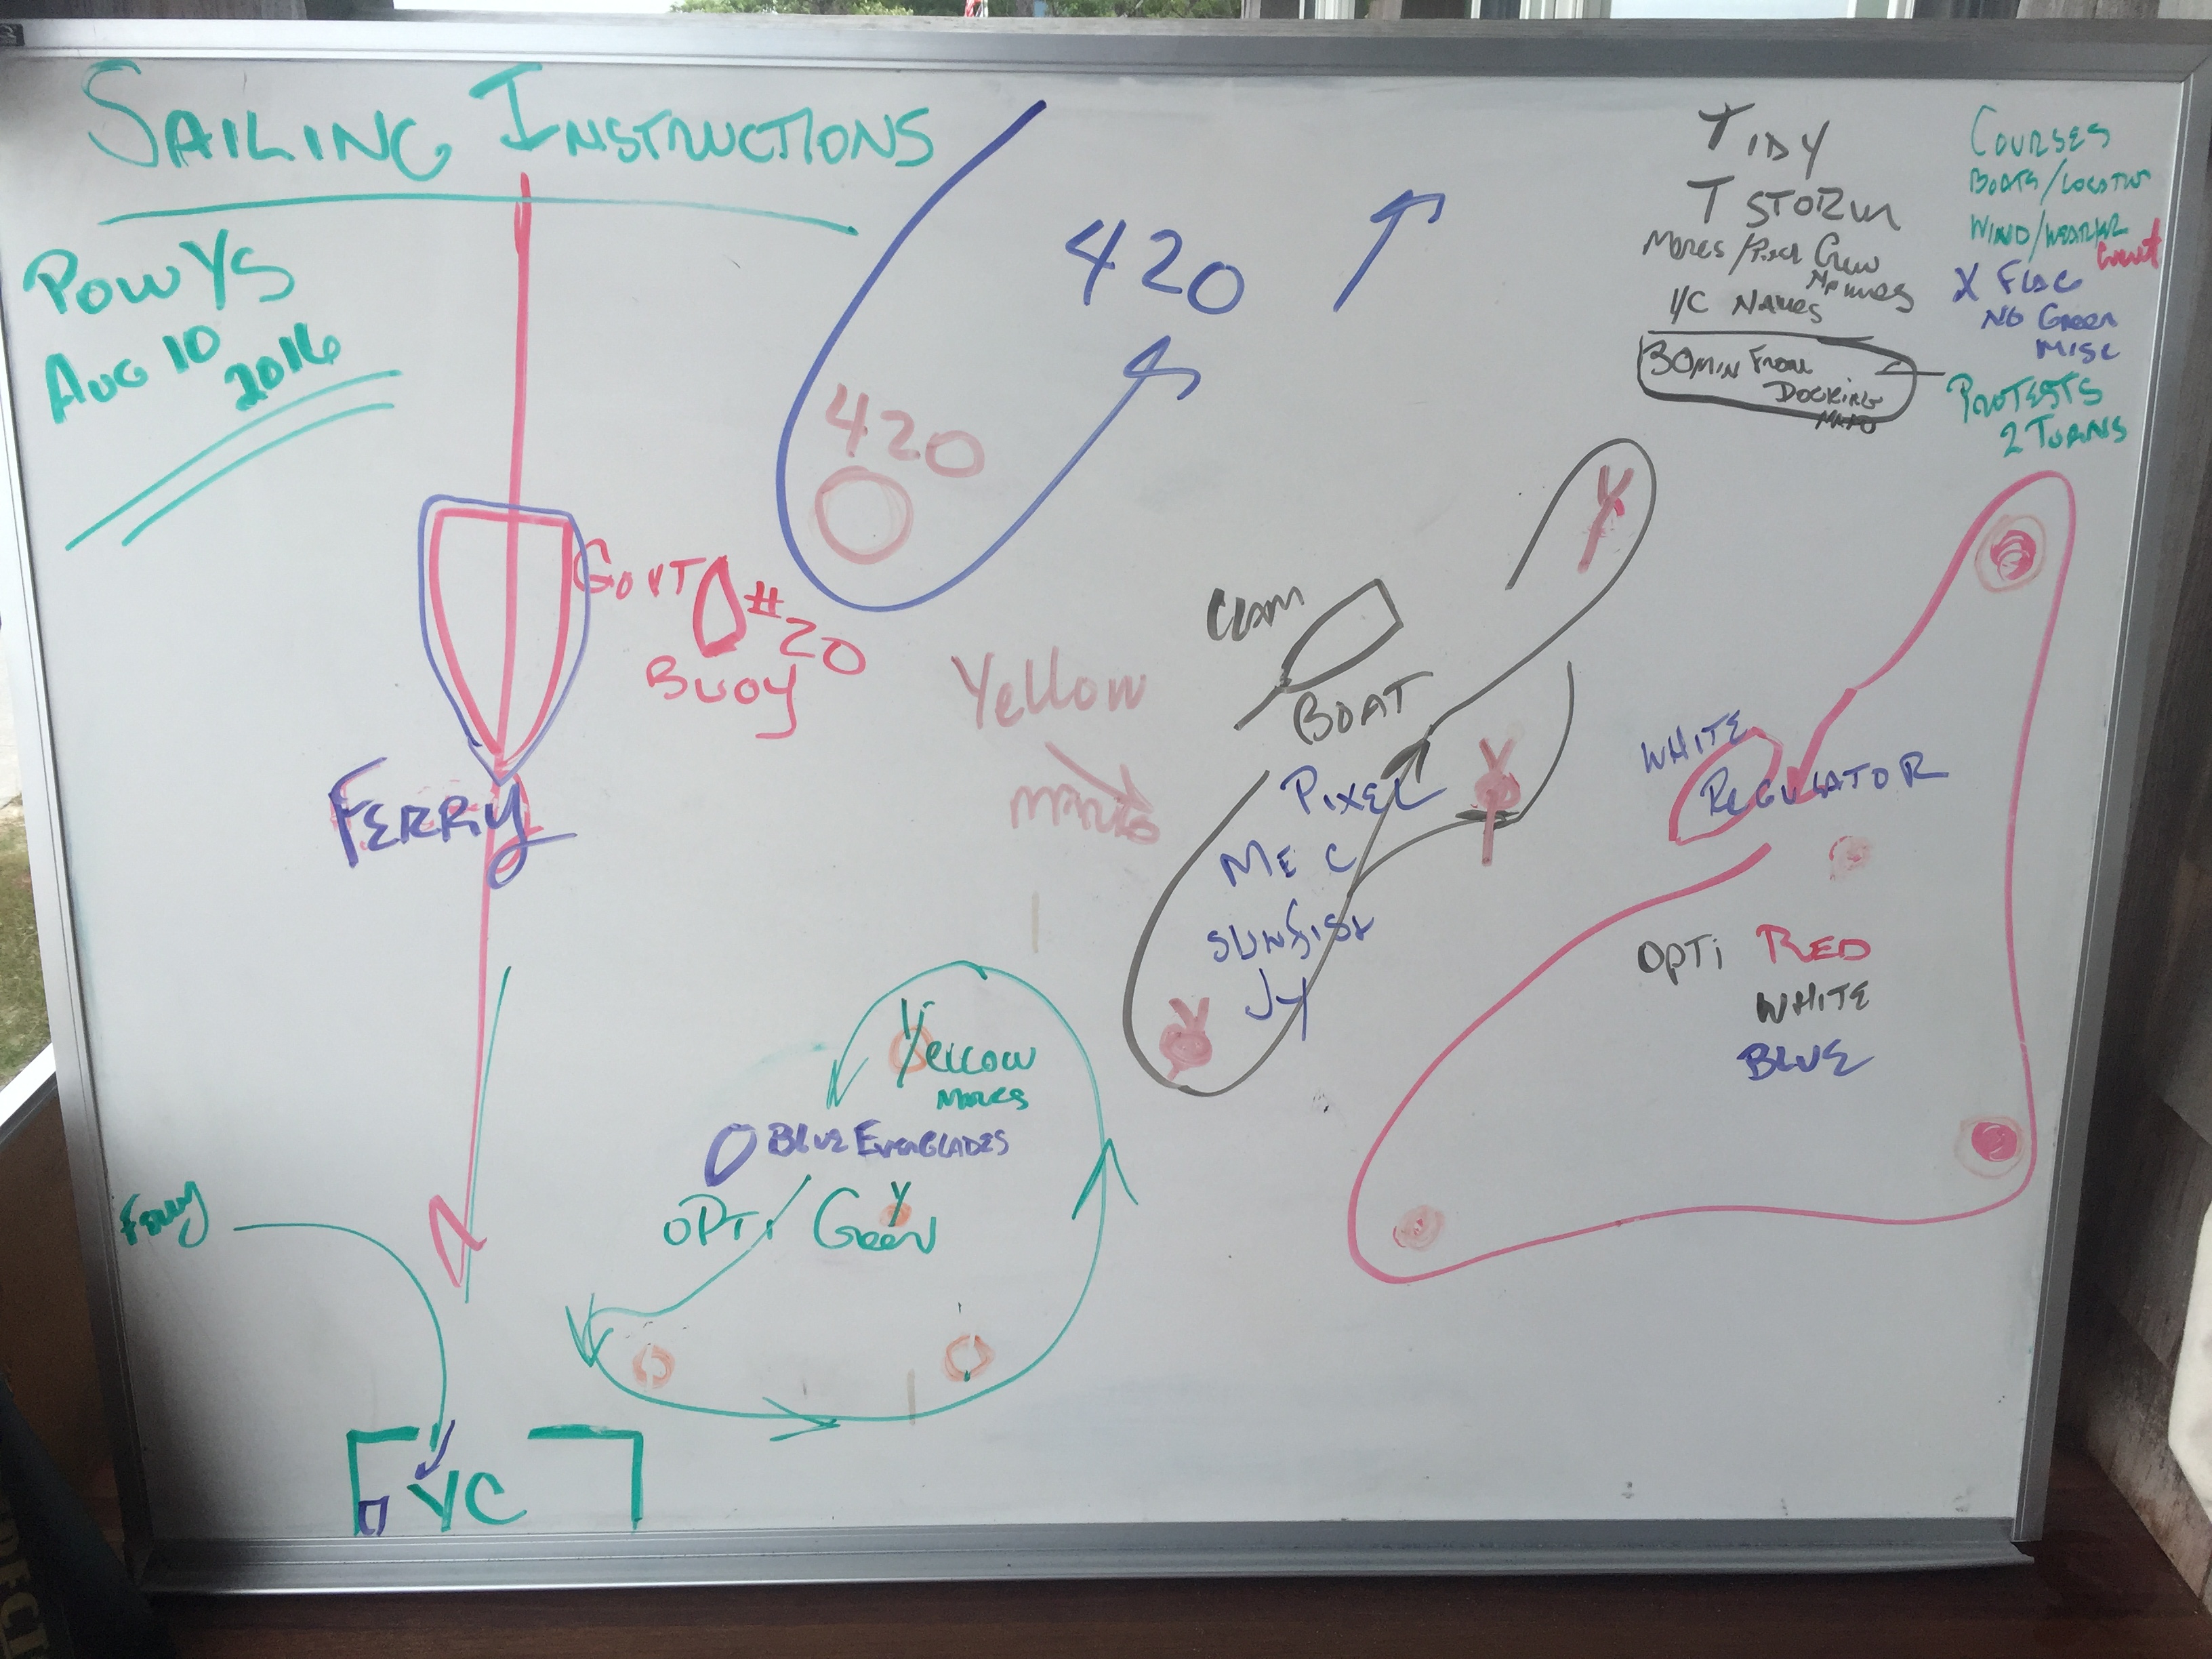 SAILING INSTRUCTIONS
POW YS
AUG 10
2016
420
420
GOVT
#20
BUOY
FERRY
Yellow
CLAM
BOAT
PIXEL
ME C
SUNFISH
JY
Y
Y
Y
TIDY
T STORM
I/C NAMES
30 MIN FROM
DOCKING
COURSES
BOATS/LOCATION
WIND/WEATHER
X FLAG
NO GREEN
MISC
PROTESTS
2 TURNS
WHITE
REGULATOR
OPTI RED
WHITE
BLUE
YELLOW
MARKS
BLUE EVERGLADES
Y
OPTI GREEN
Ferry
YC